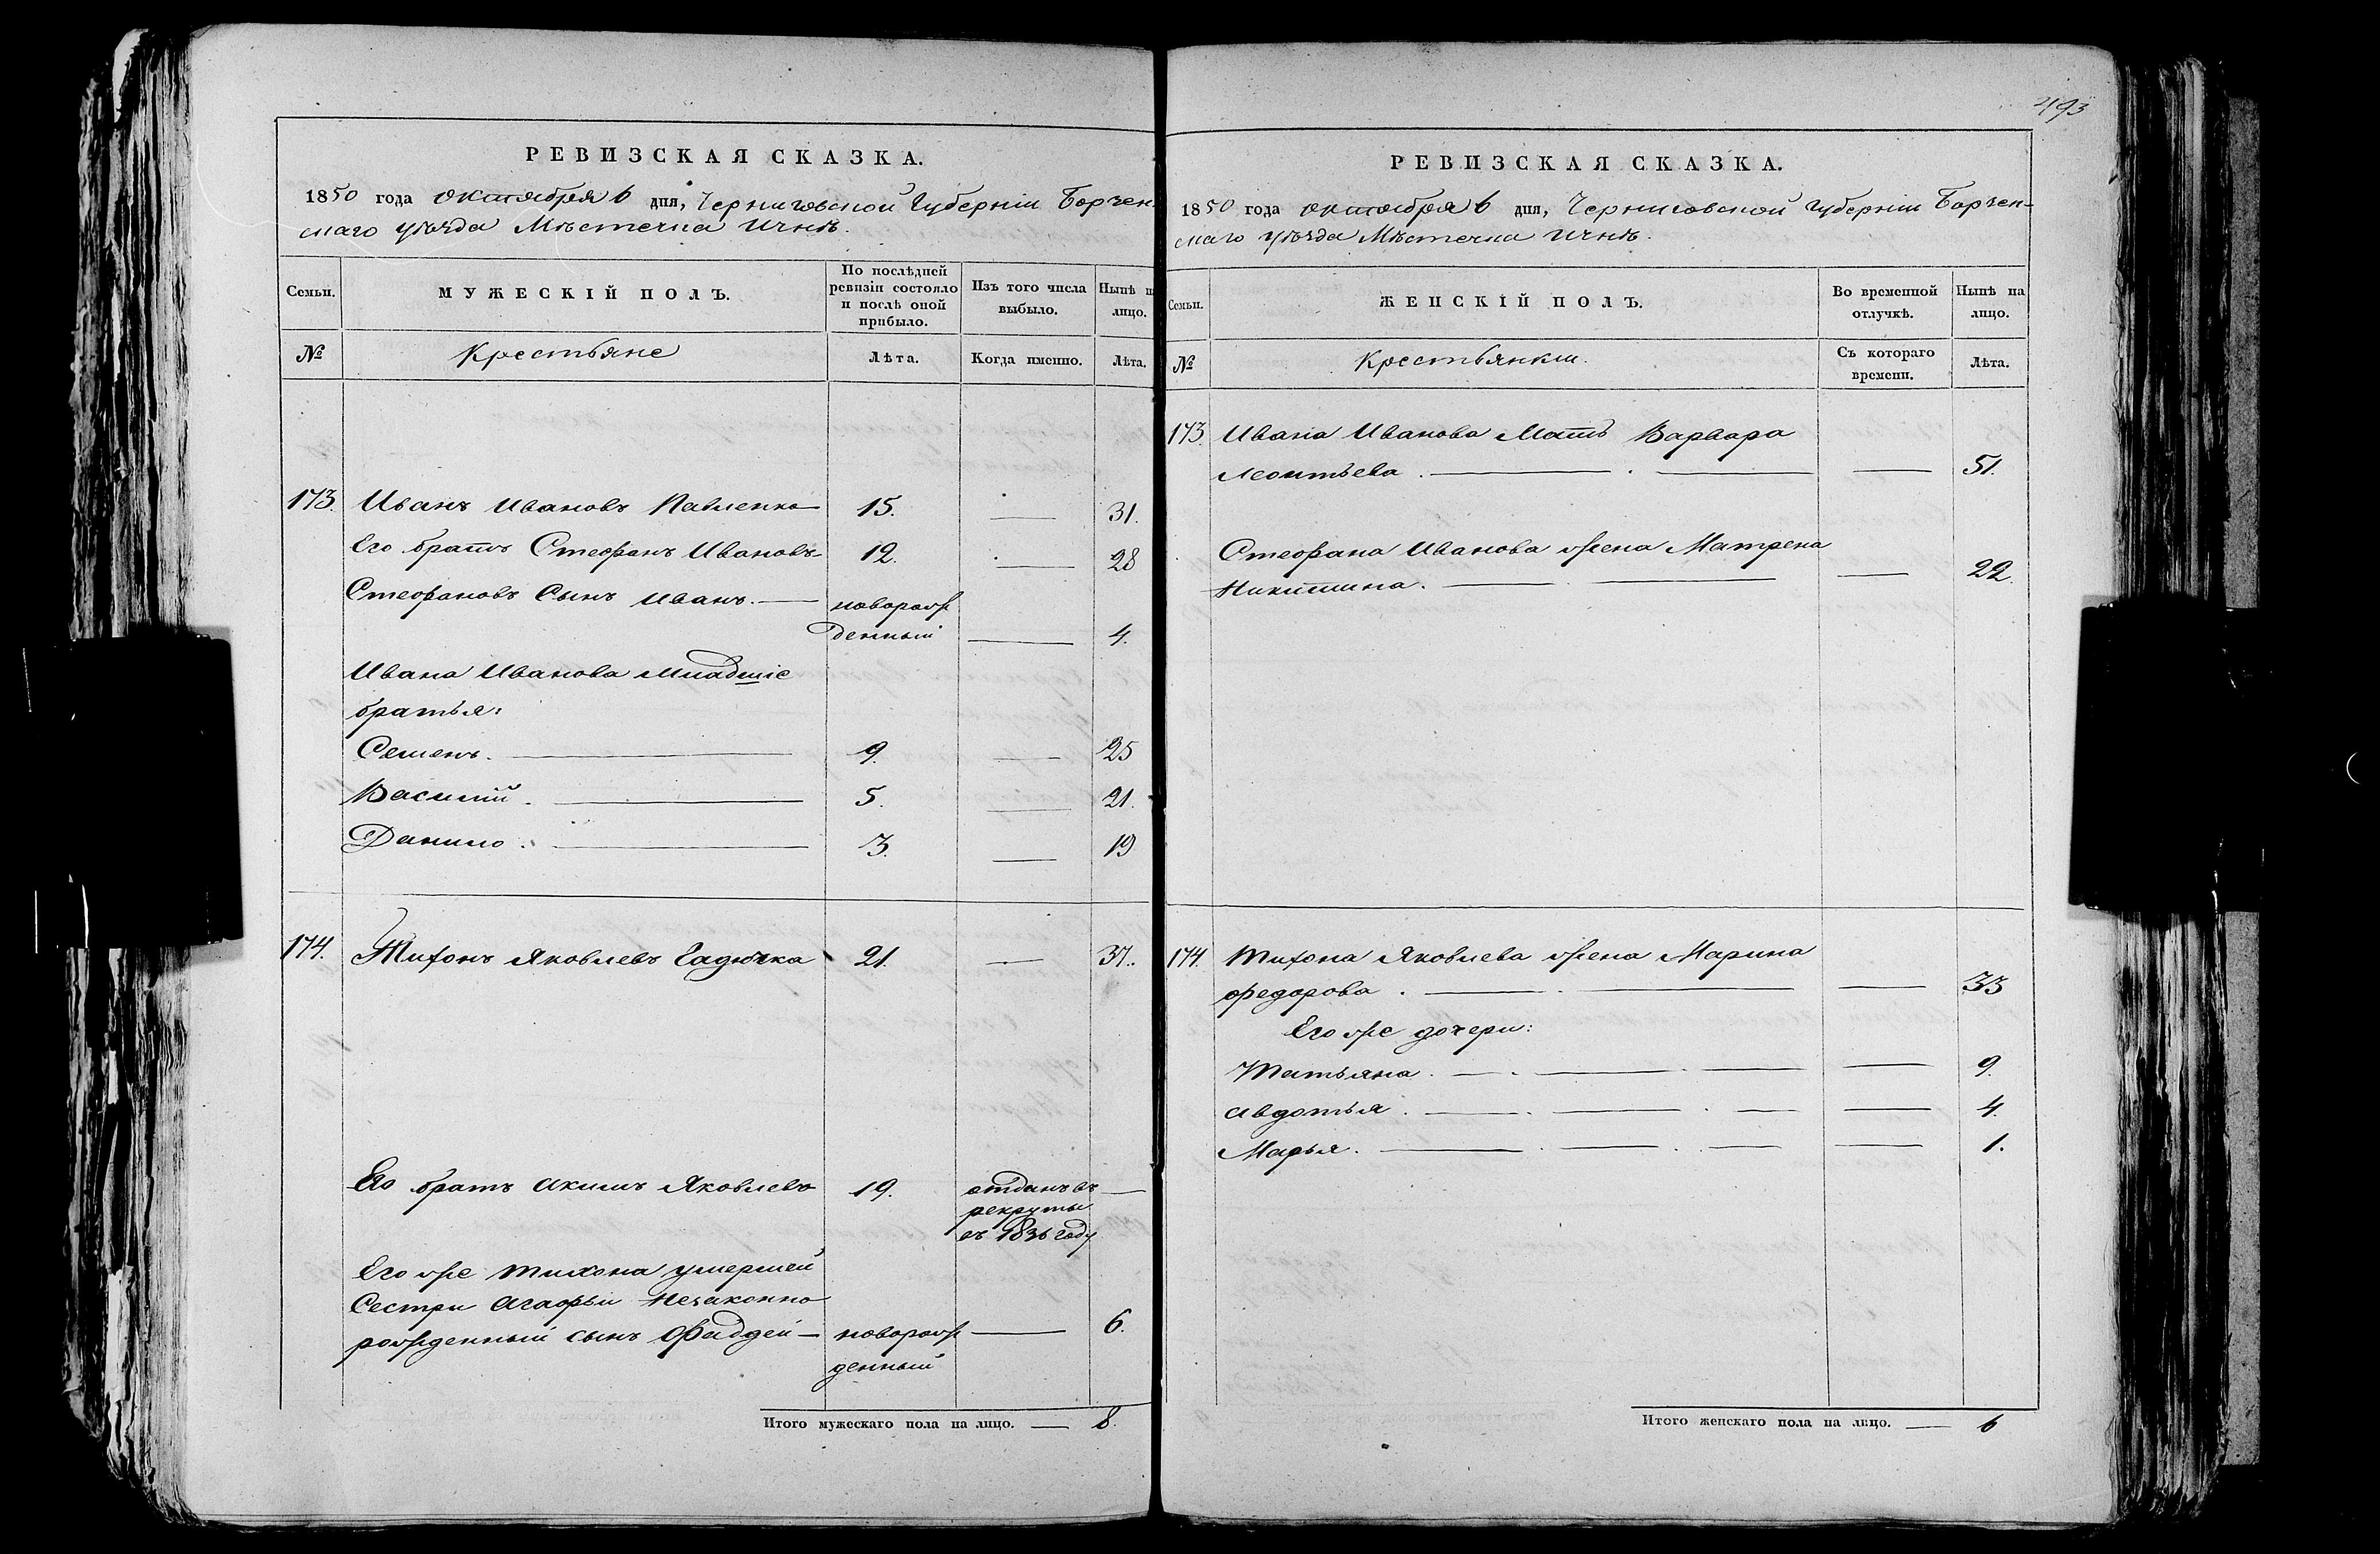 РЕВИЗСКАЯ СКАЗКА.
1850 года октября 6 дня, Черниговской Губерніи Борзен-
скаго уѣзда Мѣстечка Ичнѣ.
Семьи.
МУЖЕСКІЙ ПОЛЪ.
По послѣдней
ревизіи состояло
и послѣ оной
прибыло.
Изъ того числа
выбыло.
Нынѣ н
лицо.
№
Крестьяне
Лѣта.
Когда именно.
Лѣта.
173. Иванъ Ивановъ Павленко 15. — 31.
Его братъ Стефанъ Ивановъ 12. — 28
Стефановъ Сынъ Иванъ. — новорож
денный — 4.
Ивана Иванова младшіе
братья:
Семенъ. — 9. — 25
Василій. — 5. — 21.
Данило. — 3. — 19
174. Тихонъ Яковлевъ Гадючка 21. — 37.
Его братъ Акимъ Яковлевъ 19. отданъ въ —
рекруты
въ 1836 году
Его же Тихона умершей
Сестри Агафьи Незаконно
рожденный сынъ Фаддей — новорож — 6.
денный
Итого мужескаго пола на лицо. — 8.
493
РЕВИЗСКАЯ СКАЗКА.
1850 года октября 6 дня, Черниговской Губерніи Борзен-
скаго уѣзда Мѣстечка Ичнѣ.
Семьи.
ЖЕНСКІЙ ПОЛЪ.
Во временной
отлучкѣ.
Нынѣ на
лицо.
№
Крестьянки.
Съ котораго
времени.
Лѣта.
173. Ивана Иванова Мать Варвара
Леонтьева. — — 51.
Стефана Иванова жена Матрена
Никитина. — — 22.
174. Тихона Яковлева жена Марина
Федорова. — — 33
Его же дочери:
Татьяна. — — 9.
Авдотья. — — 4.
Марья. — — 1.
Итого женскаго пола на лицо. — 6